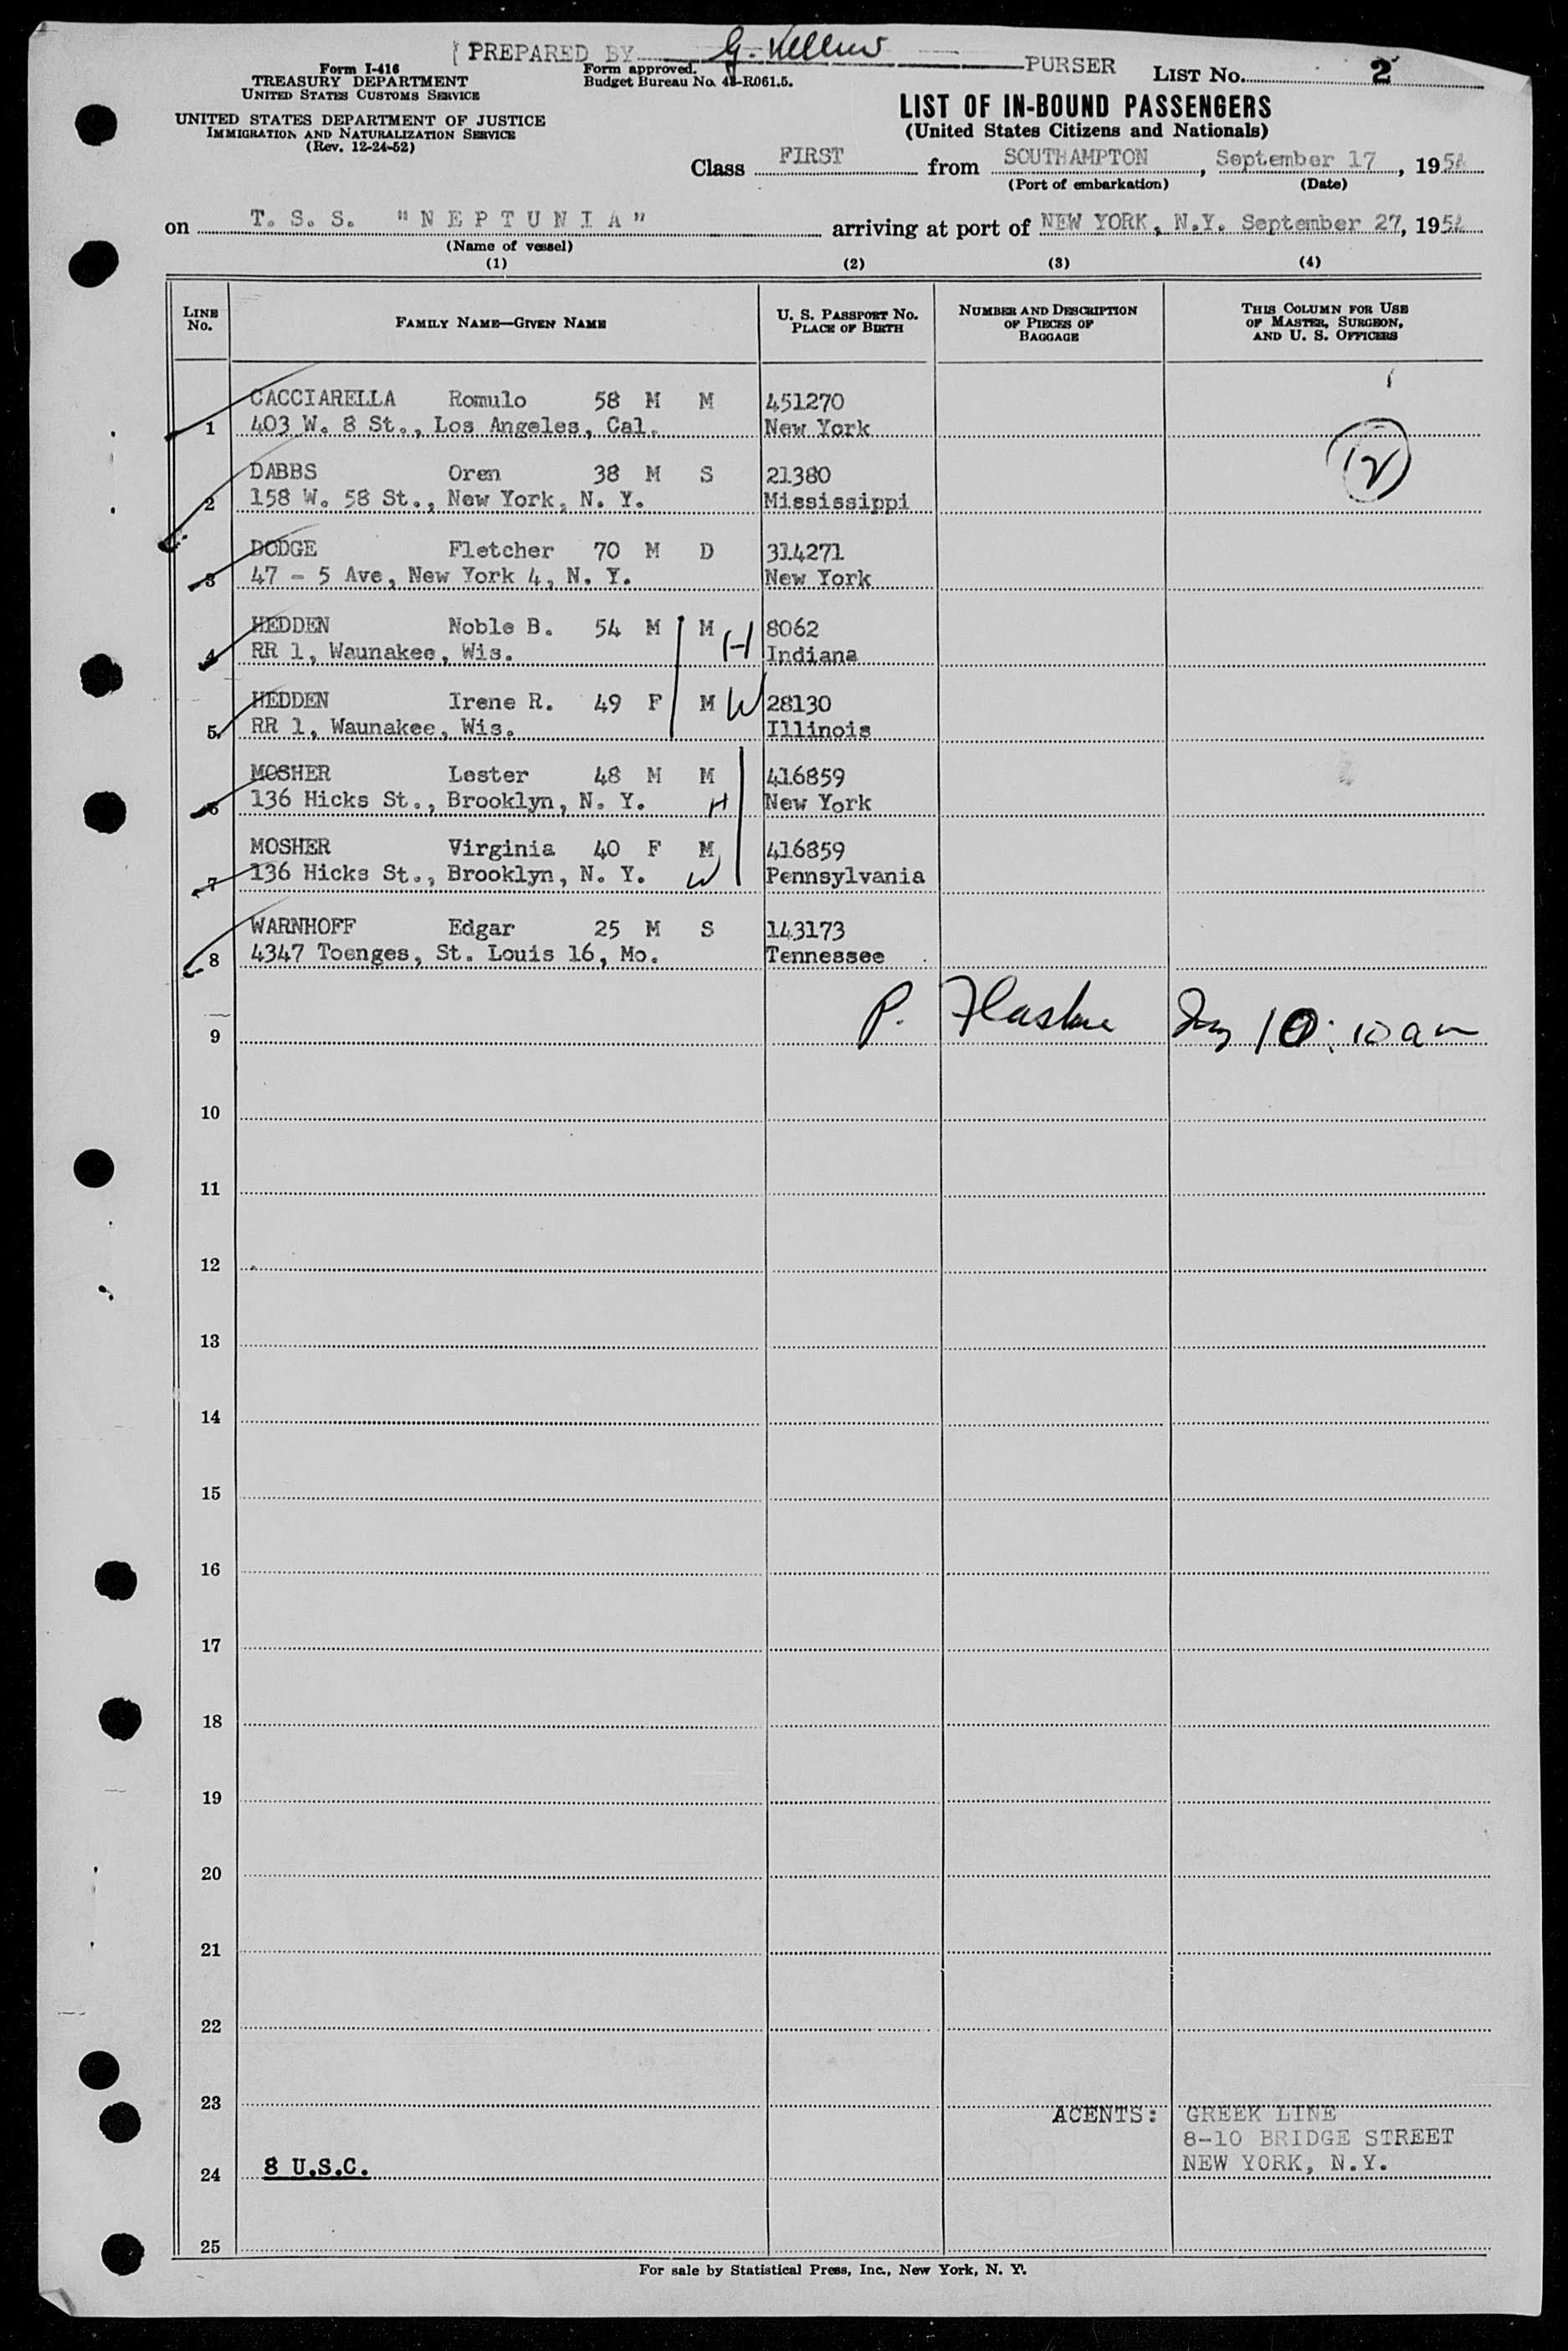 PREPARED BY G. Kellus PURSER
LIST No. 2
Form I-416
TREASURY DEPARTMENT
UNITED STATES CUSTOMS SERVICE
Form approved.
Budget Bureau No. 43-R061.5.
UNITED STATES DEPARTMENT OF JUSTICE
IMMIGRATION AND NATURALIZATION SERVICE
(Rev. 12-24-52)
LIST OF IN-BOUND PASSENGERS
(United States Citizens and Nationals)
Class FIRST from SOUTHAMPTON, September 17, 1954
(Port of embarkation) (Date)
on T. S. S. "NEPTUNIA" arriving at port of NEW YORK, N.Y. September 27, 1954
(Name of vessel)
(1) (2) (3) (4)
LINE No. FAMILY NAME—GIVEN NAME U. S. PASSPORT No. PLACE OF BIRTH NUMBER AND DESCRIPTION OF PIECES OF BAGGAGE THIS COLUMN FOR USE OF MASTER, SURGEON, AND U. S. OFFICERS
CACCIARELLA Romulo 58 M M 451270
1 403 W. 8 St., Los Angeles, Cal. New York
DABBS Oren 38 M S 21380
2 158 W. 58 St., New York, N. Y. Mississippi
DODGE Fletcher 70 M D 314271
3 47 - 5 Ave, New York 4, N. Y. New York
HEDDEN Noble B. 54 M M H 8062
4 RR 1, Waunakee, Wis. Indiana
HEDDEN Irene R. 49 F M W 28130
5 RR 1, Waunakee, Wis. Illinois
MOSHER Lester 48 M M 416859
6 136 Hicks St., Brooklyn, N. Y. H New York
MOSHER Virginia 40 F M 416859
7 136 Hicks St., Brooklyn, N. Y. W Pennsylvania
WARNHOFF Edgar 25 M S 143173
8 4347 Toenges, St. Louis 16, Mo. Tennessee
9 P. 10:10 am
10
11
12
13
14
15
16
17
18
19
20
21
22
23
AGENTS: GREEK LINE
8-10 BRIDGE STREET
24 8 U.S.C. NEW YORK, N.Y.
25
For sale by Statistical Press, Inc., New York, N. Y.